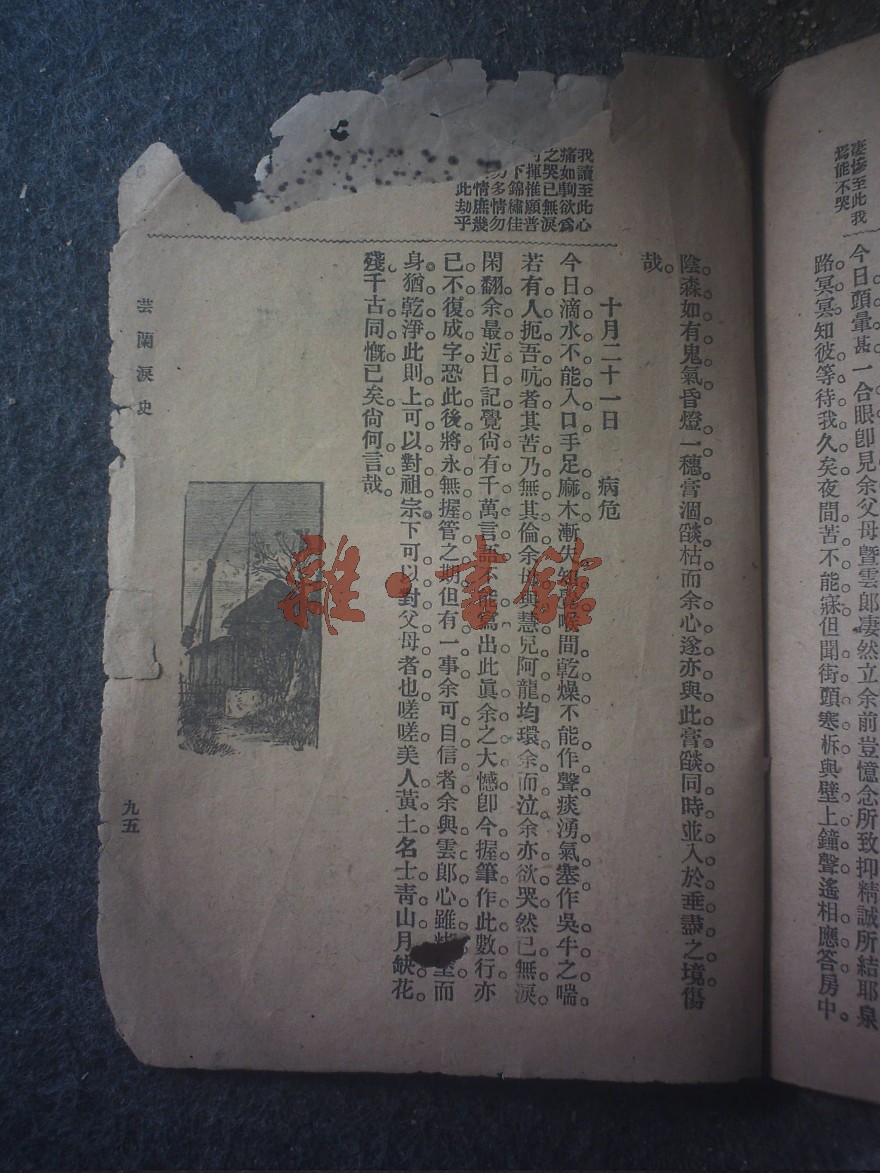 淒慘至此我
焉能不哭
今日頭暈甚一合眼卽見余父母曁雲郎凄然立余前豈憶念所致抑精誠所結耶泉
路冥冥知彼等待我久矣夜間苦不能寐但聞街頭寒柝與壁上鐘聲遙相應答房中
陰森如有鬼氣昏燈一穗膏涸燄枯而余心遂亦與此膏燄同時並入於垂盡之境傷
哉
我讀至此心
痛如剸欲爲
之哭已無淚
可揮惟願普
下錦繡佳
多情勿
情庶幾
此劫乎
十月二十一日 病危
今日滴水不能入口手足麻木漸失知覺喉間乾燥不能作聲痰湧氣塞作吳牛之喘
若有人扼吾吭者其苦乃無其倫余與慧兒阿龍均環余而泣余亦欲哭然已無淚
閑翻余最近日記覺尙有千萬言語不能寫出此眞余之大憾卽今握筆作此數行亦
已不復成字恐此後將永無握管之期但有一事余可自信者余與雲郎心雖而
身猶乾淨此則上可以對祖宗下可以對父母者也嗟嗟美人黃土名士靑山月缺花
殘千古同慨已矣尙何言哉
芸蘭淚史
九五
雜·書館